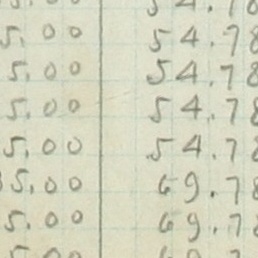 5.00 54.78
5.00 54.78
5.00 54.78
5.00 54.78
35.00 69.78
5.00 69.78